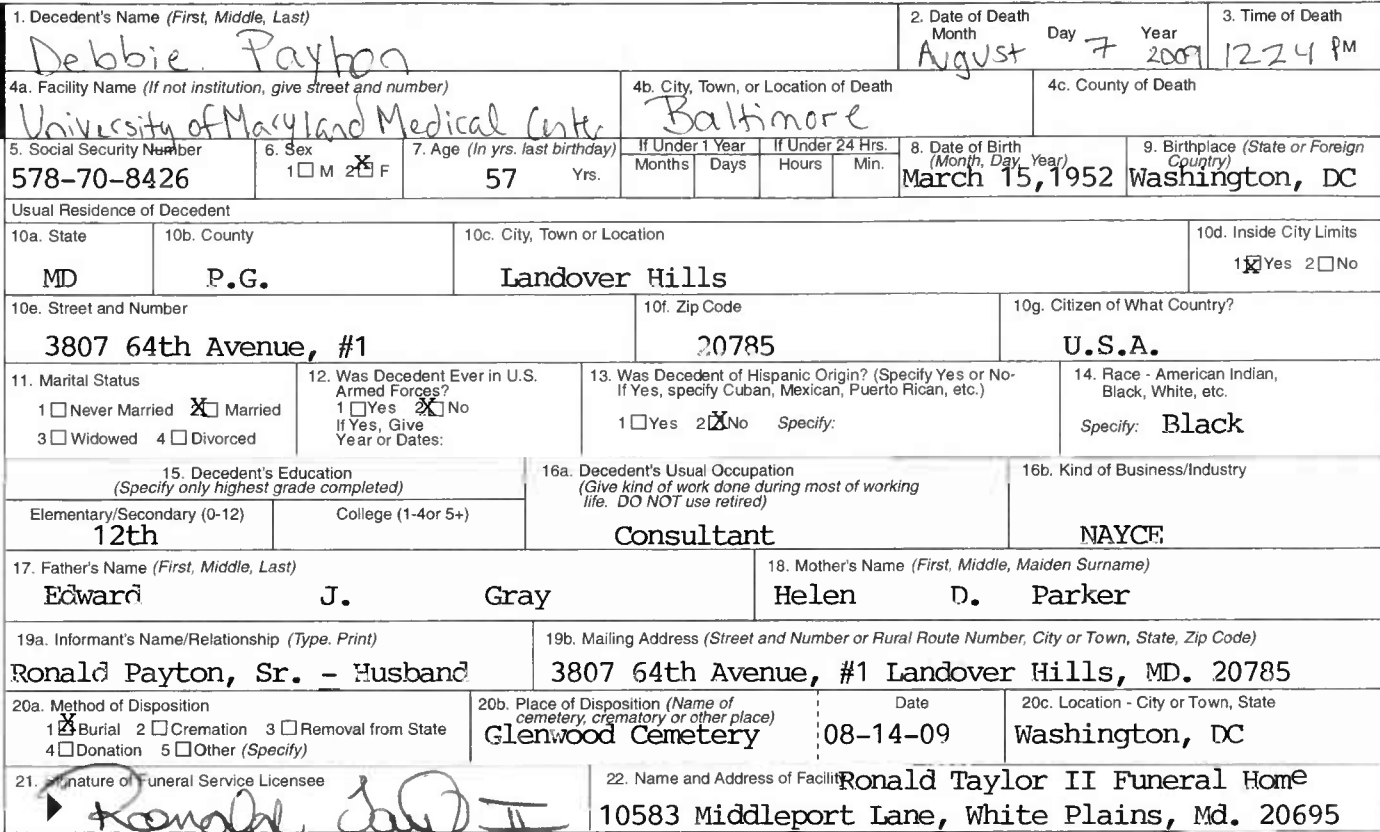 1. Decedent's Name (First, Middle, Last)
Debbie Payton
2. Date of Death
Month Day Year
August 7 2009
3. Time of Death
1224 PM
4a. Facility Name (If not institution, give street and number)
University of Maryland Medical Center
4b. City, Town, or Location of Death
Baltimore
4c. County of Death
5. Social Security Number
578-70-8426
6. Sex
1☐ M 2☒ F
7. Age (In yrs. last birthday)
57 Yrs.
If Under 1 Year
Months Days
If Under 24 Hrs.
Hours Min.
8. Date of Birth
(Month, Day, Year)
March 15,1952
9. Birthplace (State or Foreign
Country)
Washington, DC
Usual Residence of Decedent
10a. State
MD
10b. County
P.G.
10c. City, Town or Location
Landover Hills
10d. Inside City Limits
1☒Yes 2☐No
10e. Street and Number
3807 64th Avenue, #1
10f. Zip Code
20785
10g. Citizen of What Country?
U.S.A.
11. Marital Status
1☐Never Married 2☒ Married
3☐Widowed 4☐Divorced
12. Was Decedent Ever in U.S.
Armed Forces?
1☐Yes 2☒No
If Yes, Give
Year or Dates:
13. Was Decedent of Hispanic Origin? (Specify Yes or No-
If Yes, specify Cuban, Mexican, Puerto Rican, etc.)
1☐Yes 2☒No Specify:
14. Race - American Indian,
Black, White, etc.
Specify: Black
15. Decedent's Education
(Specify only highest grade completed)
Elementary/Secondary (0-12)
12th
College (1-4or 5+)
16a. Decedent's Usual Occupation
(Give kind of work done during most of working
life. DO NOT use retired)
Consultant
16b. Kind of Business/Industry
NAYCE
17. Father's Name (First, Middle, Last)
Edward J. Gray
18. Mother's Name (First, Middle, Maiden Surname)
Helen D. Parker
19a. Informant's Name/Relationship (Type. Print)
Ronald Payton, Sr. - Husband
19b. Mailing Address (Street and Number or Rural Route Number, City or Town, State, Zip Code)
3807 64th Avenue, #1 Landover Hills, MD. 20785
20a. Method of Disposition
1☒Burial 2☐Cremation 3☐Removal from State
4☐Donation 5☐Other (Specify)
20b. Place of Disposition (Name of
cemetery, crematory or other place)
Glenwood Cemetery
Date
08-14-09
20c. Location - City or Town, State
Washington, DC
21. Signature of Funeral Service Licensee
22. Name and Address of Facility Ronald Taylor II Funeral Home
10583 Middleport Lane, White Plains, Md. 20695